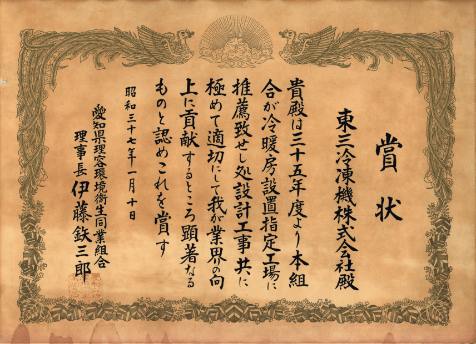 賞状
東三冷凍機株式会社殿
貴殿は三十五年度より本組
合が冷暖房設置指定工場に
推薦致せし処設計工事共に
極めて適切にして我が業界の向
上に貢献するところ顕著なる
ものと認めこれを賞す
昭和三十七年一月十日
愛知県理容環境衛生同業組合
理事長 伊藤鉄三郎